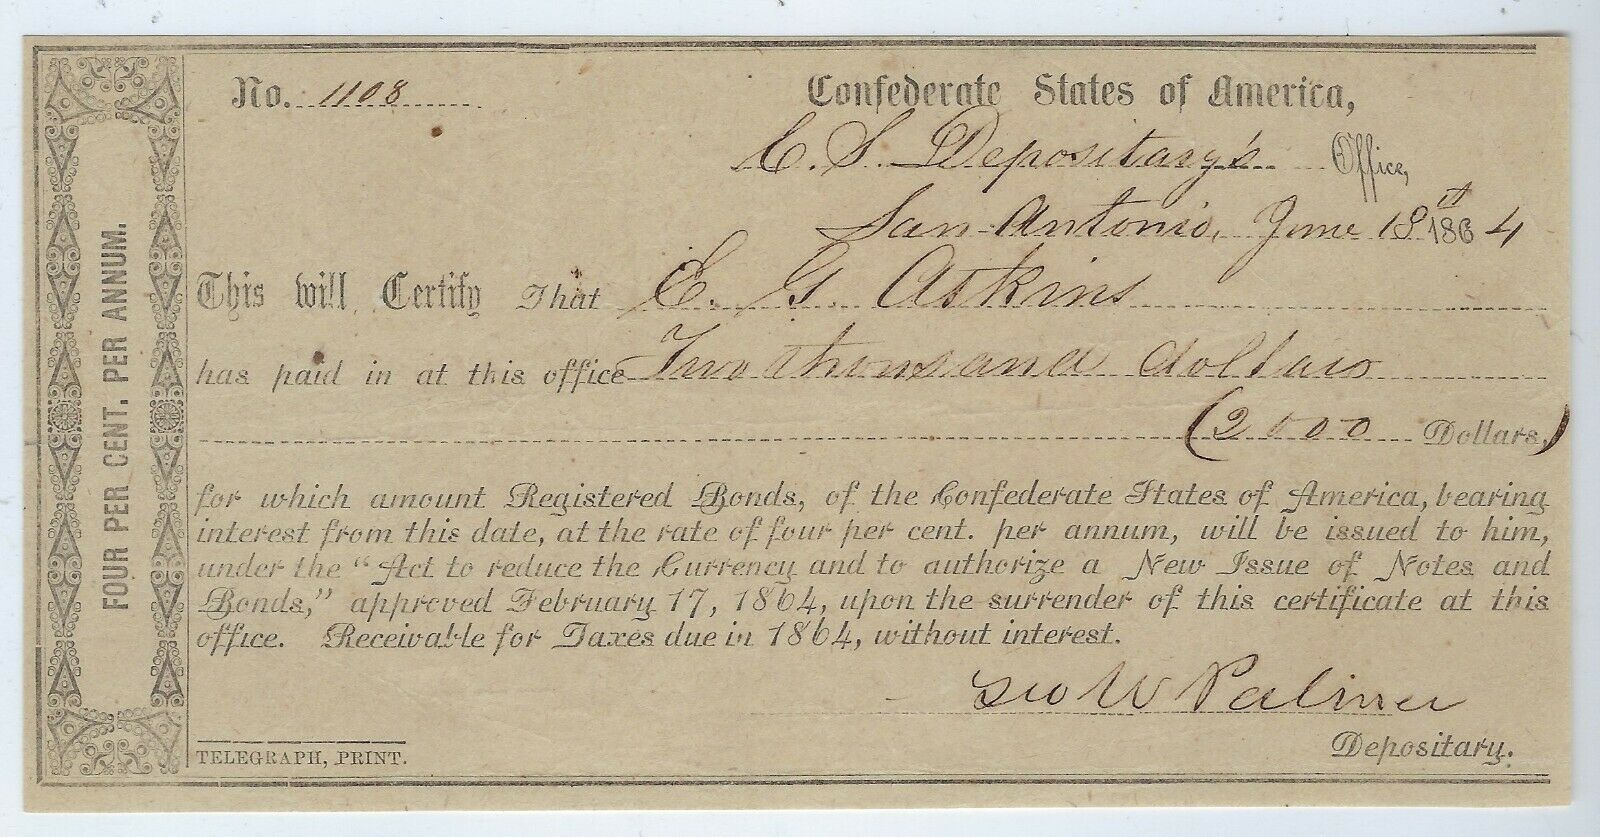 No. 1108
Confederate States of America,
C. S. Depositary's Office,
San Antonio, June 18 1864
FOUR PER CENT. PER ANNUM.
This will Certify That E. G. Askins
has paid in at this office Two thousand dollars
(2000 Dollars,)
for which amount Registered Bonds, of the Confederate States of America, bearing
interest from this date, at the rate of four per cent. per annum, will be issued to him,
under the "Act to reduce the Currency and to authorize a New Issue of Notes and
Bonds," approved February 17, 1864, upon the surrender of this certificate at this
office. Receivable for Taxes due in 1864, without interest.
Geo W Palmer
Depositary.
TELEGRAPH, PRINT.